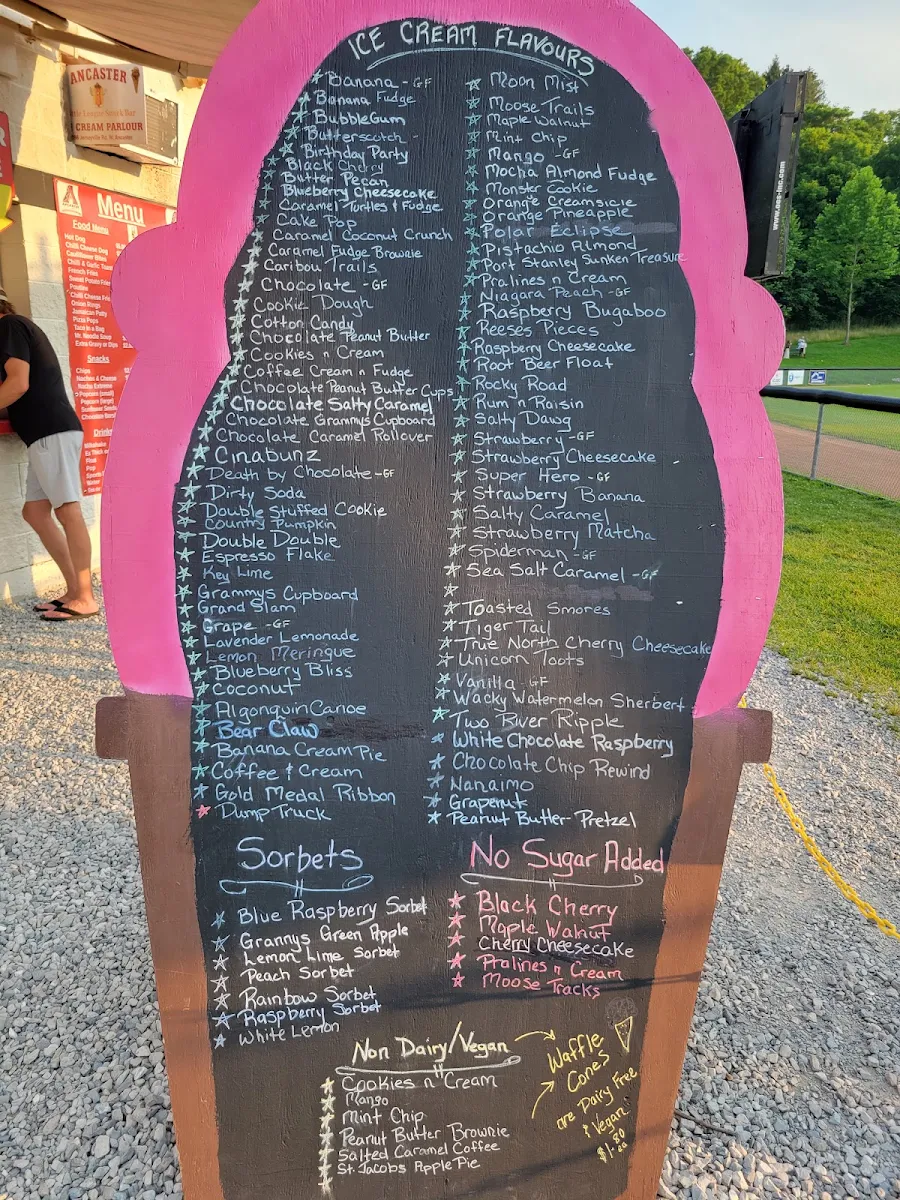 ICE CREAM FLAVOURS
Banana - GF
Banana Fudge
BubbleGum
Butterscotch -
Birthday Party
Black Cherry
Butter Pecan
Blueberry Cheesecake
Caramel Turtles & Fudge
Cake Pop
Caramel Coconut Crunch
Caramel Fudge Brownie
Caribou Trails
Chocolate - GF
Cookie Dough
Cotton Candy
Chocolate Peanut Butter
Cookies n Cream
Coffee Cream n Fudge
Chocolate Peanut Butter Cups
Chocolate Salty Caramel
Chocolate Grannys Cupboard
Chocolate Caramel Rollover
Cinabunz
Death by Chocolate - GF
Dirty Soda
Double Stuffed Cookie
Country Pumpkin
Double Double
Espresso Flake
Key Lime
Grammys Cupboard
Grand Slam
Grape - GF
Lavender Lemonade
Lemon Meringue
Blueberry Bliss
Coconut
Algonquin Canoe
Bear Claw
Banana Cream Pie
Coffee & Cream
Gold Medal Ribbon
Dump Truck
Moon Mist
Moose Trails
Maple Walnut
Mint Chip
Mango - GF
Mocha Almond Fudge
Monster Cookie
Orange Creamsicle
Orange Pineapple
Polar Eclipse
Pistachio Almond
Port Stanley Sunken Treasure
Pralines n Cream
Niagara Peach - GF
Raspberry Bugaboo
Reeses Pieces
Raspberry Cheesecake
Root Beer Float
Rocky Road
Rum n Raisin
Salty Dawg
Strawberry - GF
Strawberry Cheesecake
Super Hero - GF
Strawberry Banana
Salty Caramel
Strawberry Matcha
Spiderman - GF
Sea Salt Caramel - GF
Toasted Smores
Tiger Tail
True North Cherry Cheesecake
Unicorn Toots
Vanilla - GF
Wacky Watermelon Sherbert
Two River Ripple
White Chocolate Raspberry
Chocolate Chip Rewind
Nanaimo
Grapenut
Peanut Butter Pretzel
Sorbets
Blue Raspberry Sorbet
Grannys Green Apple
Lemon Lime Sorbet
Peach Sorbet
Rainbow Sorbet
Raspberry Sorbet
White Lemon
No Sugar Added
Black Cherry
Maple Walnut
Cherry Cheesecake
Pralines n Cream
Moose Tracks
Non Dairy/Vegan
Cookies n Cream
Mango
Mint Chip
Peanut Butter Brownie
Salted Caramel Coffee
St. Jacobs Apple Pie
Waffle
Cones
are Dairy Free
& Vegan
$1.80
ea
ANCASTER
Little League Snack Bar
CREAM PARLOUR
Menu
Food Menu
Hot Dog
Chilli Cheese Dog
Cauliflower Bites
Chilli & Garlic Toast
French Fries
Sweet Potato Fries
Poutine
Chilli Cheese Fries
Onion Rings
Jamaican Patty
Pizza Pops
Taco in a Bag
Mr. Noodle Soup
Extra Gravy or Dips
Snacks
Chips
Nachos & Cheese
Nacho Extreme
Popcorn (small)
Popcorn (large)
Sunflower Seeds
Drinks
Milkshake
Float
Pop
www.oes-inc.com